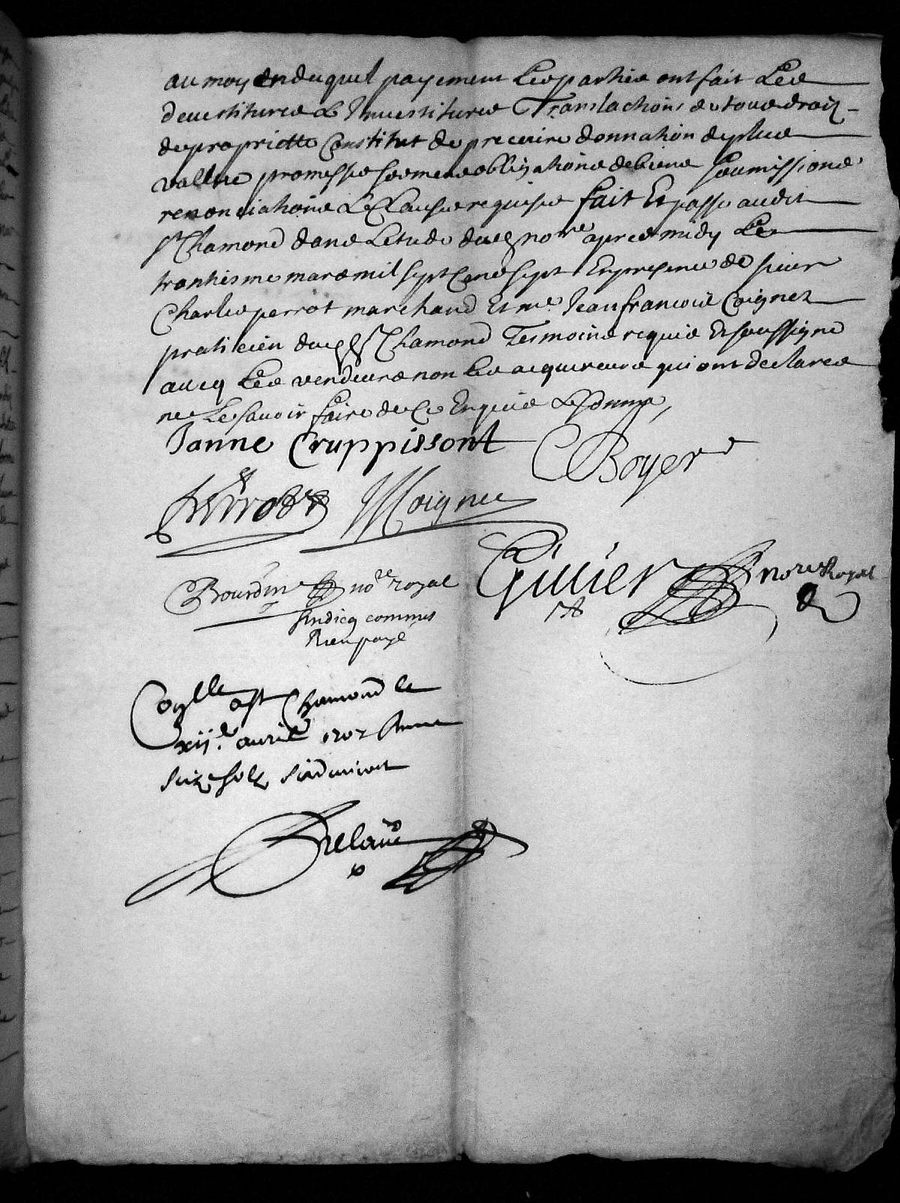 au moyen duquel payement Les parties ont fait Les
devestitures & Investitures Translations de tous droitz
de propriette Constitut de precaire donnation de plus
vallue promesses sermens obligations de biens soumissions
renonciations & Clauses requises fait Et passé audit
St Chamond dans Letude du nore apres midy Le
trantiesme mars mil sept cens sept En presence de sieur
Charles perrot marchand Et me Jean francois Coignet
praticien dud St Chamond Tesmoins requis Et soussignes
avecq Les vendeurs non Les acquereurs qui ont declares
ne Le savoir faire de Ce Enquis
Janne Cruppissont
Boyer
Perrot Coignet
Bourdin nore royal
Giiier nore Royal
sindicq commis
Rien payé
Conlle a St Chamond le
xiie avril 1707